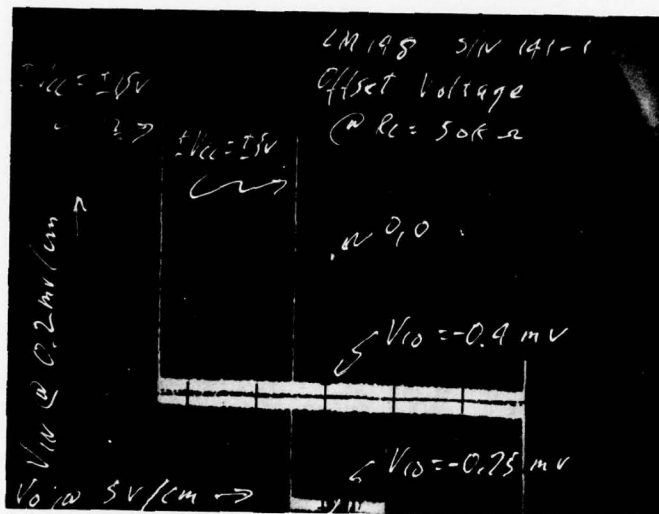 LM198 S/N 141-1
Offset Voltage
@ RL = 50K Ω
±VCC = ±15V
±VCC = ±5V
0,0
VIN @ 0.2mV/cm →
VIO = -0.4 mV
VIO = -0.25 mV
VO @ 5V/cm →